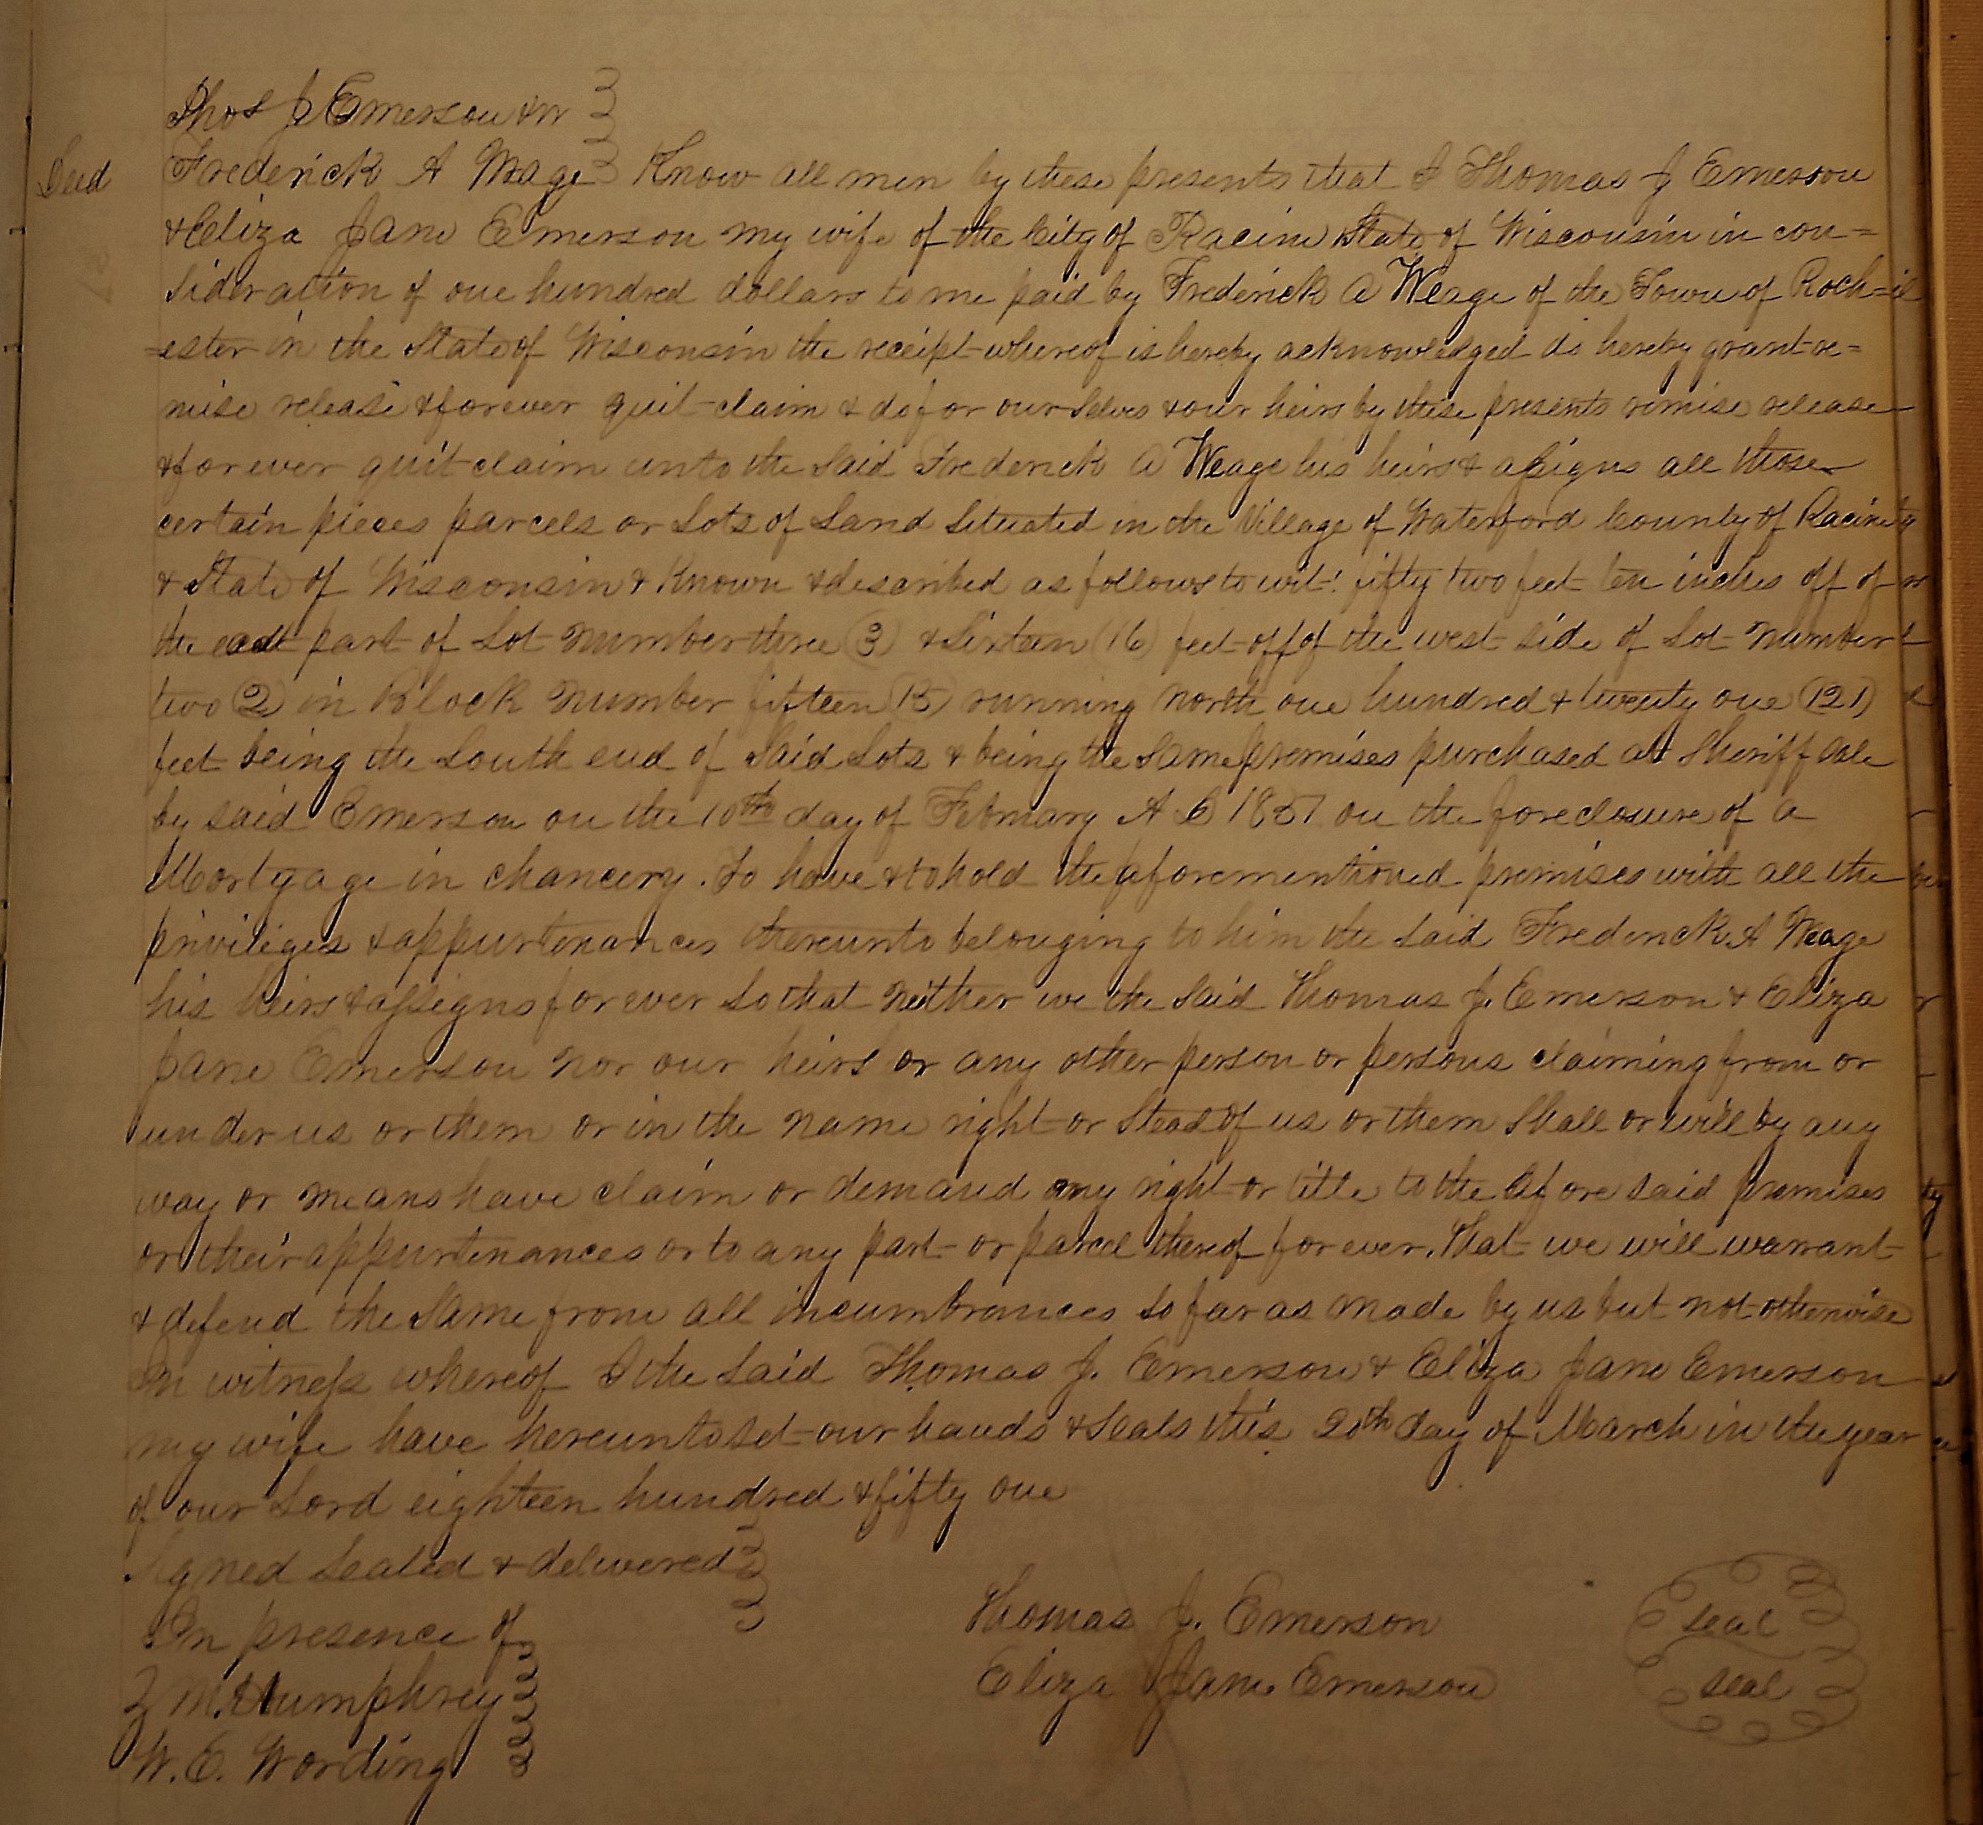 Thos J Emerson & W
Deed Frederick A Weage Know all men by these presents that I Thomas J Emerson
& Eliza Jane Emerson my wife of the City of Racine State of Wisconsin in con=
sideration of one hundred dollars to me paid by Frederick A Weage of the Town of Roch=
=ester in the State of Wisconsin the receipt whereof is hereby acknowledged do hereby grant re=
mise release & forever quit claim & do for our selves & our heirs by these presents remise release
& for ever quit claim unto the said Frederick A Weage his heirs & assigns all those
certain pieces parcels or Lots of Land situated in the Village of Waterford County of Racine
& State of Wisconsin & Known & described as follows to wit: fifty two feet ten inches off of
the east part of Lot number three (3) & sixteen (16) feet off of the west side of Lot number
two (2) in Block number fifteen (15) running north one hundred & twenty one (121)
feet being the South end of said Lots & being the same premises purchased at Sheriff sale
by said Emerson on the 10th day of February A D 1851 on the foreclosure of a
Mortgage in chancery. To have & to hold the aforementioned premises with all the
priviliges & appurtenances thereunto belonging to him the said Frederick A Weage
his heirs & assigns for ever so that neither we the said Thomas J. Emerson & Eliza
Jane Emerson nor our heirs or any other person or persons claiming from or
under us or them or in the name right or stead of us or them shall or will by any
way or means have claim or demand any right or title to the afore said premises
or their appurtenances or to any part or parcel thereof for ever. That we will warrant
& defend the same from all incumbrances so far as made by us but not otherwise
In witness whereof I the said Thomas J. Emerson & Eliza Jane Emerson
my wife have hereunto set our hands & seals this 20th day of March in the year
of our Lord eighteen hundred & fifty one
Signed sealed & delivered
In presence of
Thomas J. Emerson seal
M. Humphrey
Eliza Jane Emerson seal
W. E. Wording